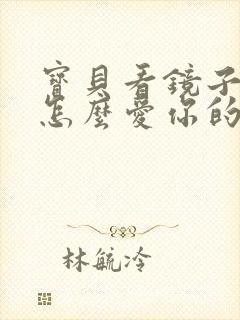 寶貝看鏡子
怎麼愛你的
林毓冷